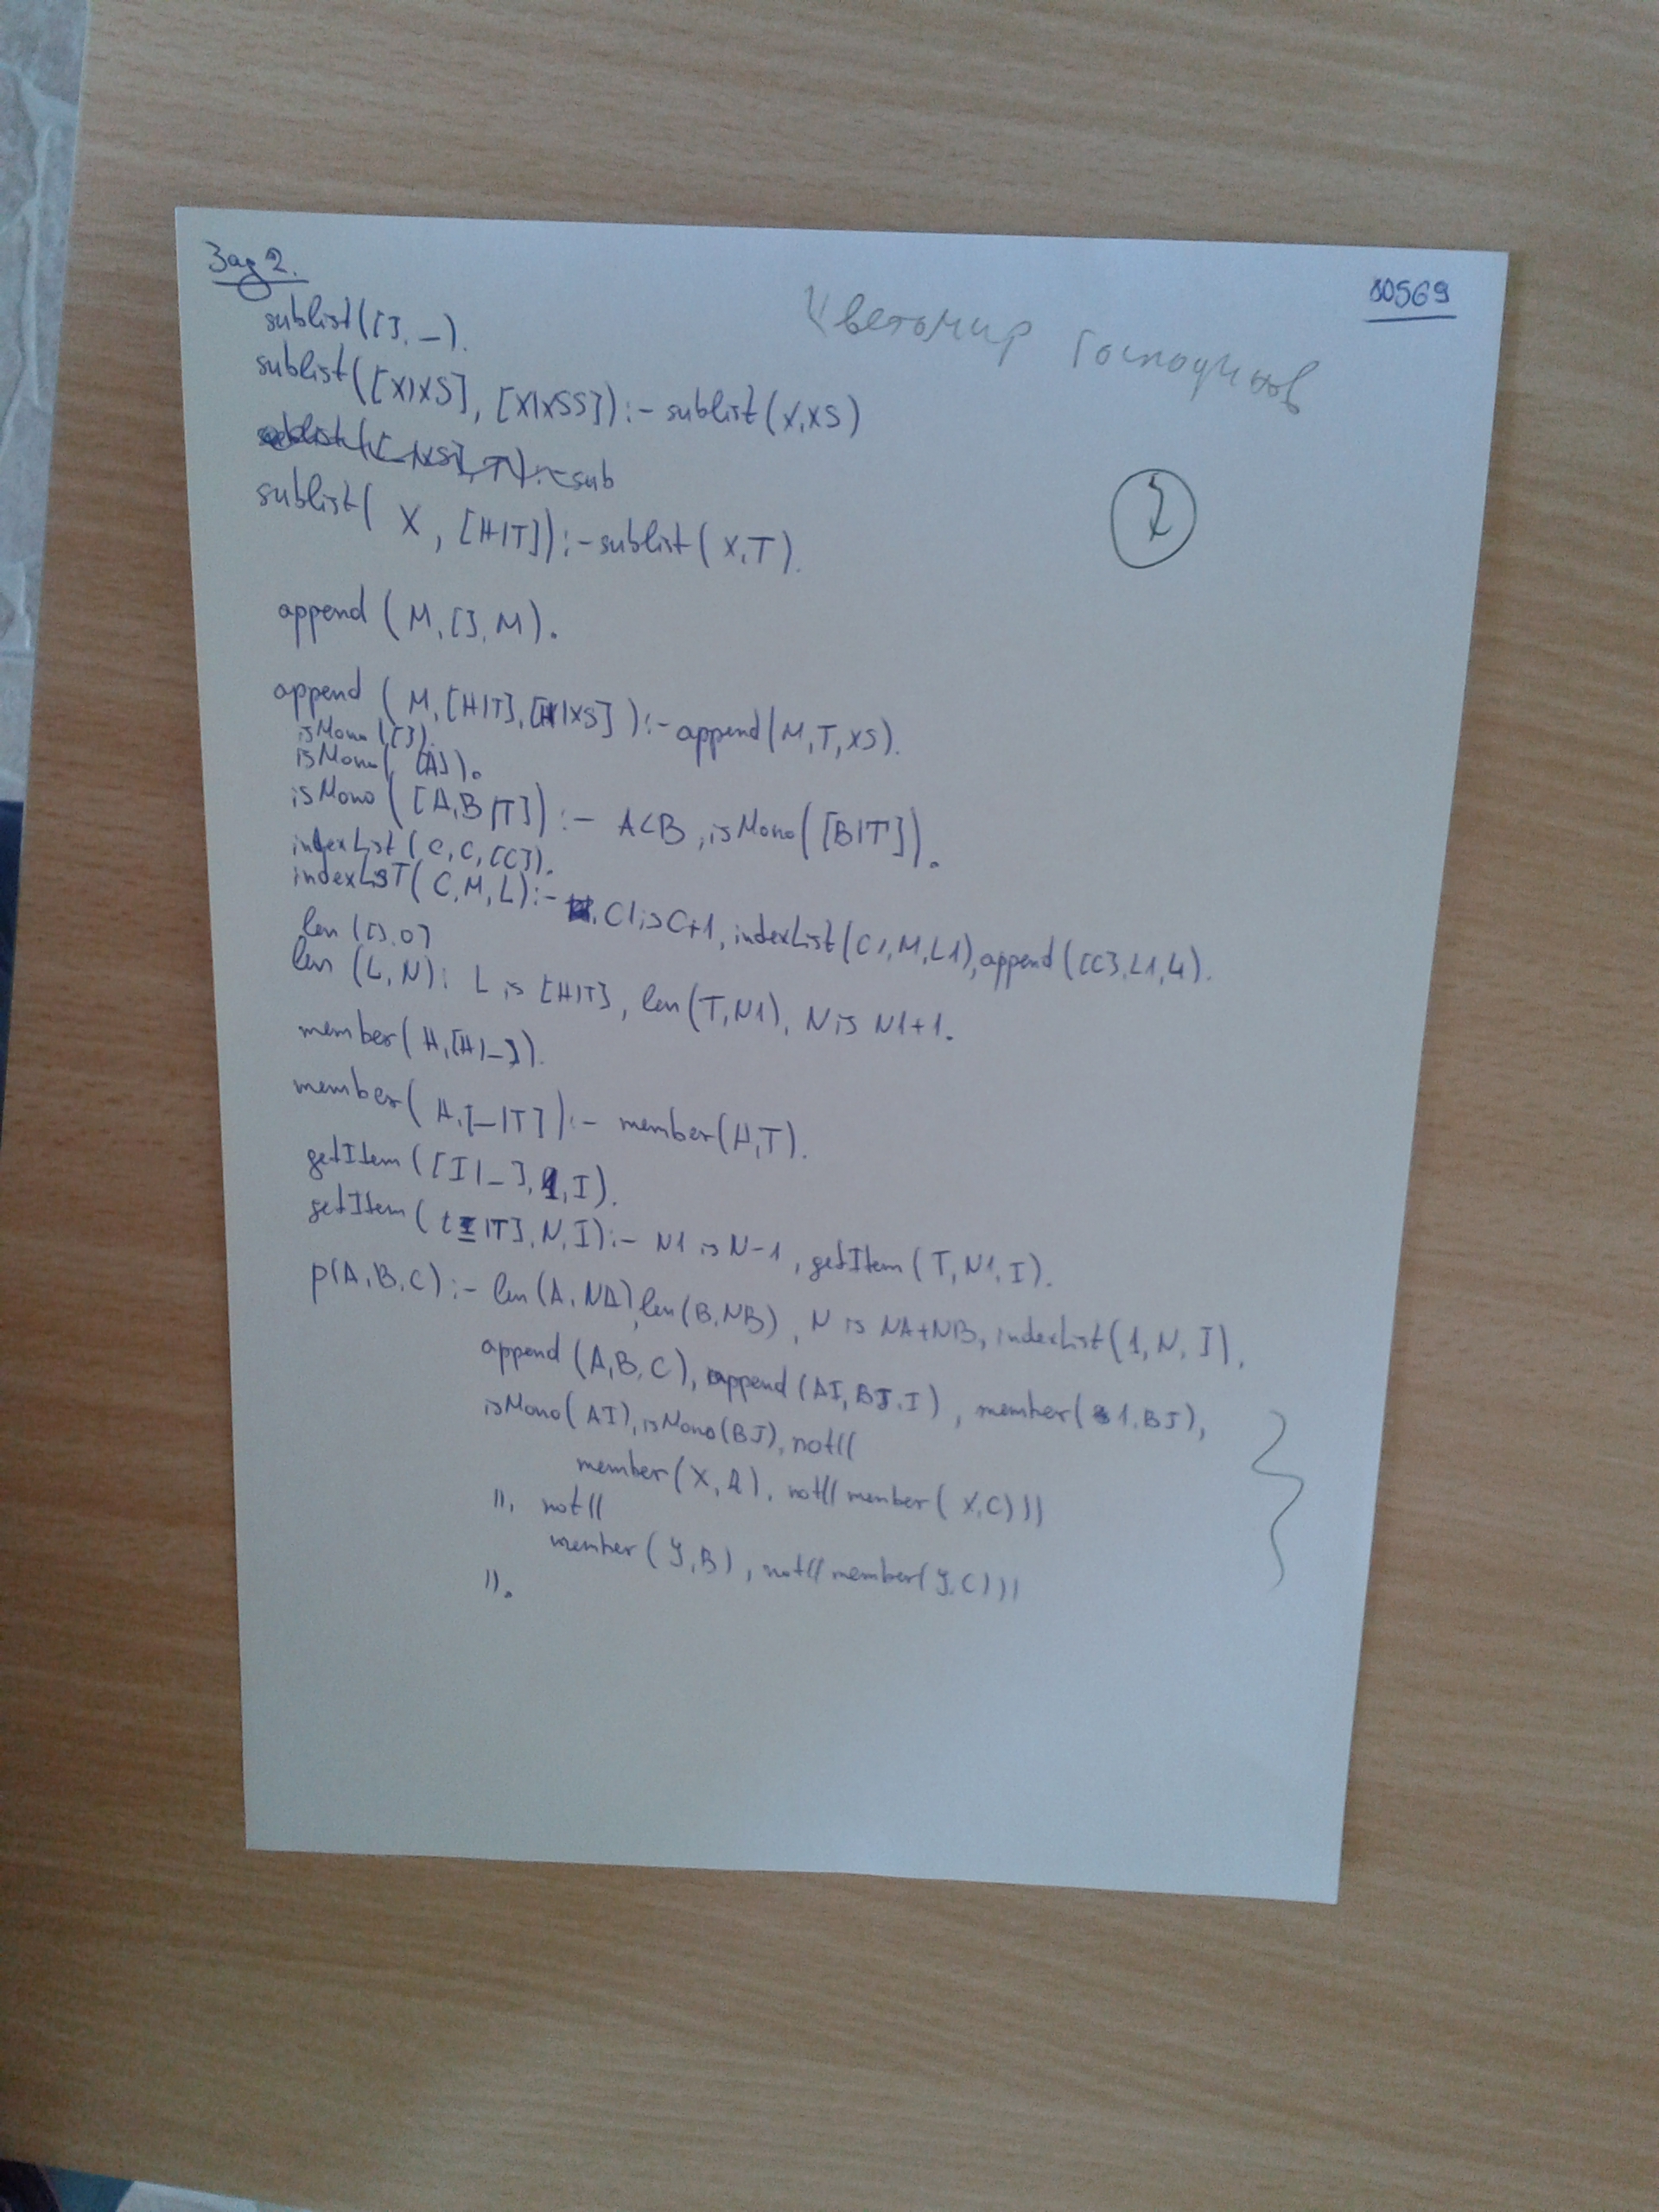 Зад 2.
80569
Цветомир Господинов
sublist([], _).
sublist([X|XS], [X|XSS]):- sublist(X,XS)
sublist( X, [H|T]):- sublist( X,T).
append (M,[],M).
append (M,[H|T],[H|XS]):- append(M,T,XS).
isMono([]).
isMono( [A]).
isMono([A,B|T]):- A<B, isMono([B|T]).
indexList(C,C,[C]).
indexLisT(C,M,L):- C1 is C+1, indexList(C1,M,L1), append([C],L1,L).
len([],0)
len (L,N): L is [H|T], len(T,N1), N is N1+1.
member(H,[H|_]).
member(H,[_|T]):- member(H,T).
getItem([I|_],1,I).
getItem([_|T],N,I):- N1 is N-1, getItem(T,N1,I).
p(A,B,C):- len(A,NA), len(B,NB), N is NA+NB, indexList(1,N,I),
append(A,B,C), append(AI,BJ,I), member(1,BJ),
isMono(AI), isMono(BJ), not((
member(X,A), not((member(X,C)))
)), not((
member(Y,B), not((member(Y,C)))
)).